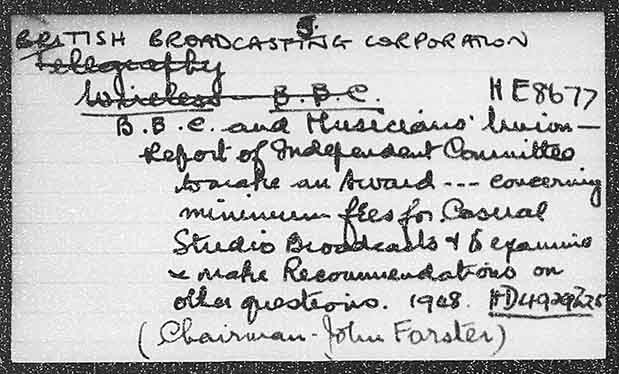 BRITISH BROADCASTING CORPORATION
Telegraphy
Wireless B.B.C. HE8677
B.B.C. and Musicians' Union —
Report of Independent Committee
to make an Award --- concerning
minimum fees for Casual
Studio Broadcasts & to examine
& make Recommendations on
other questions. 1948.
(Chairman - John Forster)